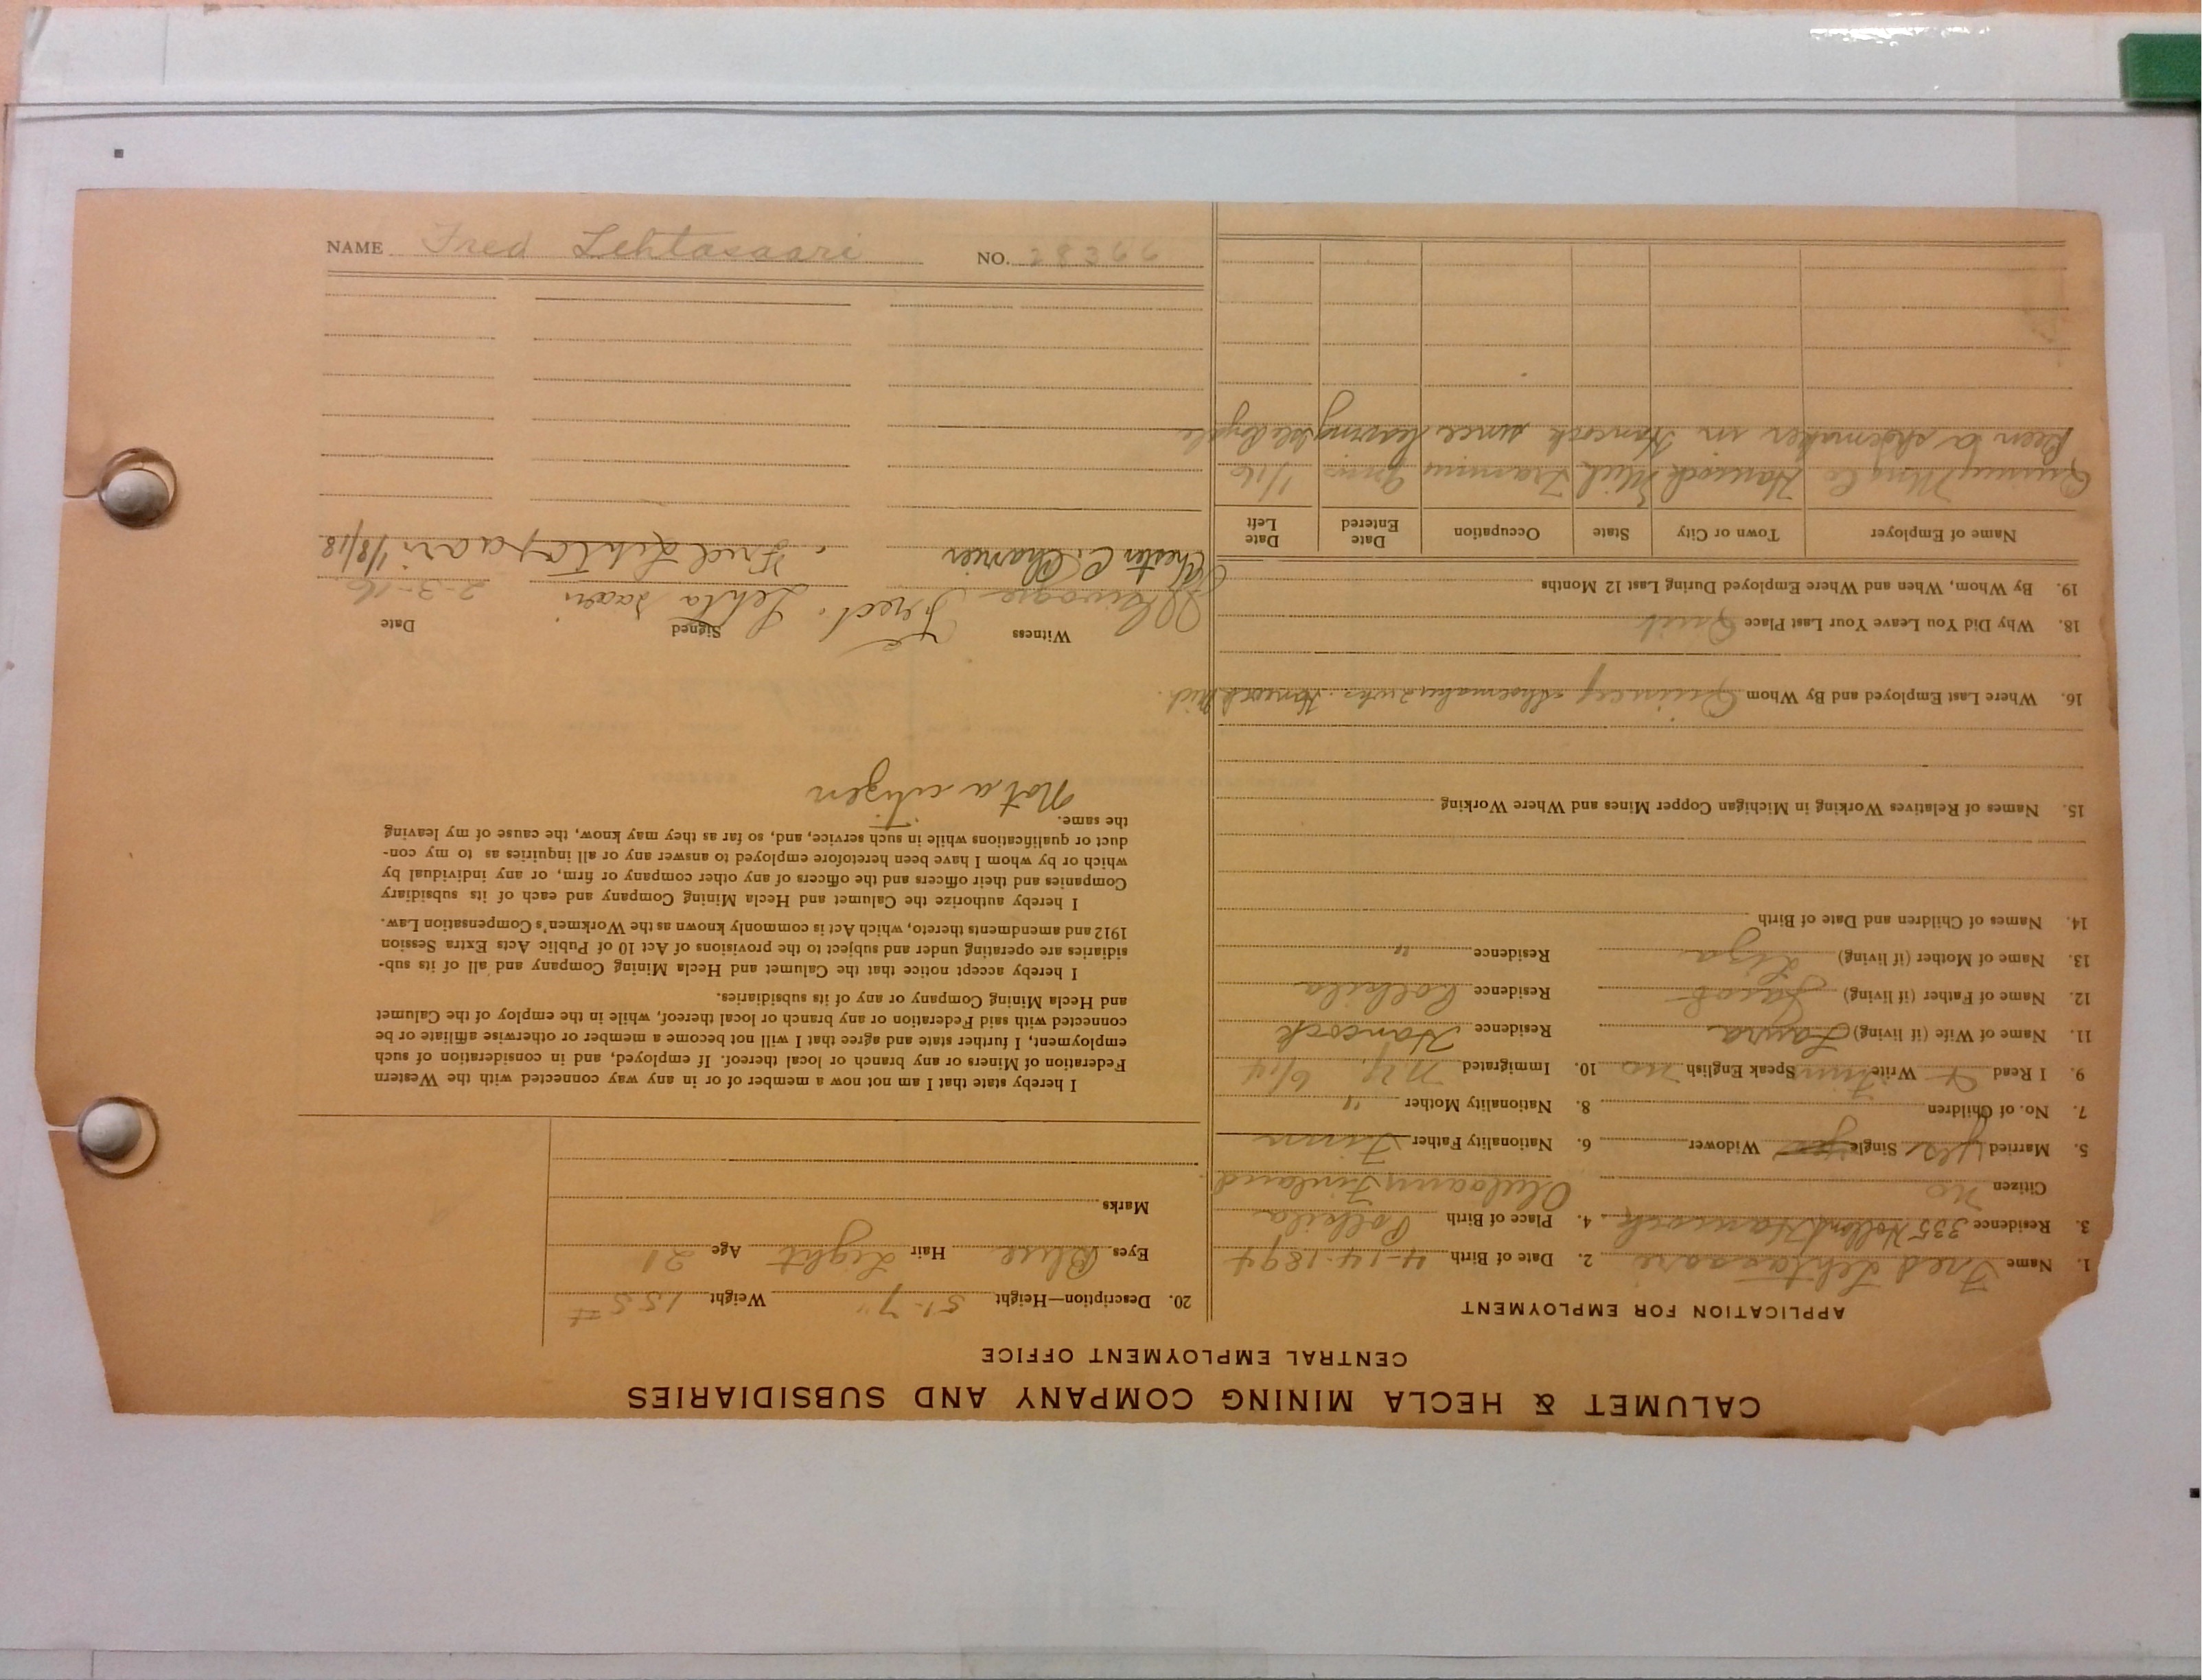 CALUMET & HECLA MINING COMPANY AND SUBSIDIARIES
CENTRAL EMPLOYMENT OFFICE
APPLICATION FOR EMPLOYMENT
1. Name Fred Lehtasaari 2. Date of Birth 4-14-1894
3. Residence 335 Hancock 4. Place of Birth
Citizen no Finland
5. Married yes Single yes Widower 6. Nationality Father Finn
7. No. of Children 8. Nationality Mother "
9. I Read Write Finn Speak English no 10. Immigrated N.Y. 6/14
11. Name of Wife (if living) Laura Residence Hancock
12. Name of Father (if living) Jacob Residence
13. Name of Mother (if living) Liza Residence "
14. Names of Children and Date of Birth
15. Names of Relatives Working in Michigan Copper Mines and Where Working
16. Where Last Employed and By Whom Quincy - Shoemaker 2 wks. Hancock Mich.
18. Why Did You Leave Your Last Place Quit
19. By Whom, When and Where Employed During Last 12 Months
Name of Employer Town or City State Occupation Date Entered Date Left
Quincy Mng Co Hancock Mich Tramming 1/16
Been a shoemaker in Hancock since leaving
20. Description—Height 5'-7" Weight 155#
Eyes Blue Hair Light Age 21
Marks
I hereby state that I am not now a member of or in any way connected with the Western
Federation of Miners or any branch or local thereof. If employed, and in consideration of such
employment, I further state and agree that I will not become a member or otherwise affiliate or be
connected with said Federation or any branch or local thereof, while in the employ of the Calumet
and Hecla Mining Company or any of its subsidiaries.
I hereby accept notice that the Calumet and Hecla Mining Company and all of its sub-
sidiaries are operating under and subject to the provisions of Act 10 of Public Acts Extra Session
1912 and amendments thereto, which Act is commonly known as the Workmen's Compensation Law.
I hereby authorize the Calumet and Hecla Mining Company and each of its subsidiary
Companies and their officers and the officers of any other company or firm, or any individual by
which or by whom I have been heretofore employed to answer any or all inquiries as to my con-
duct or qualifications while in such service, and, so far as they may know, the cause of my leaving
the same.
Not a citizen
Witness Signed Date
Fred. Lehta saari 2-3-16
Chester C. Fred Lehtasaari 1/8/18
NAME Fred Lehtasaari NO. 28366